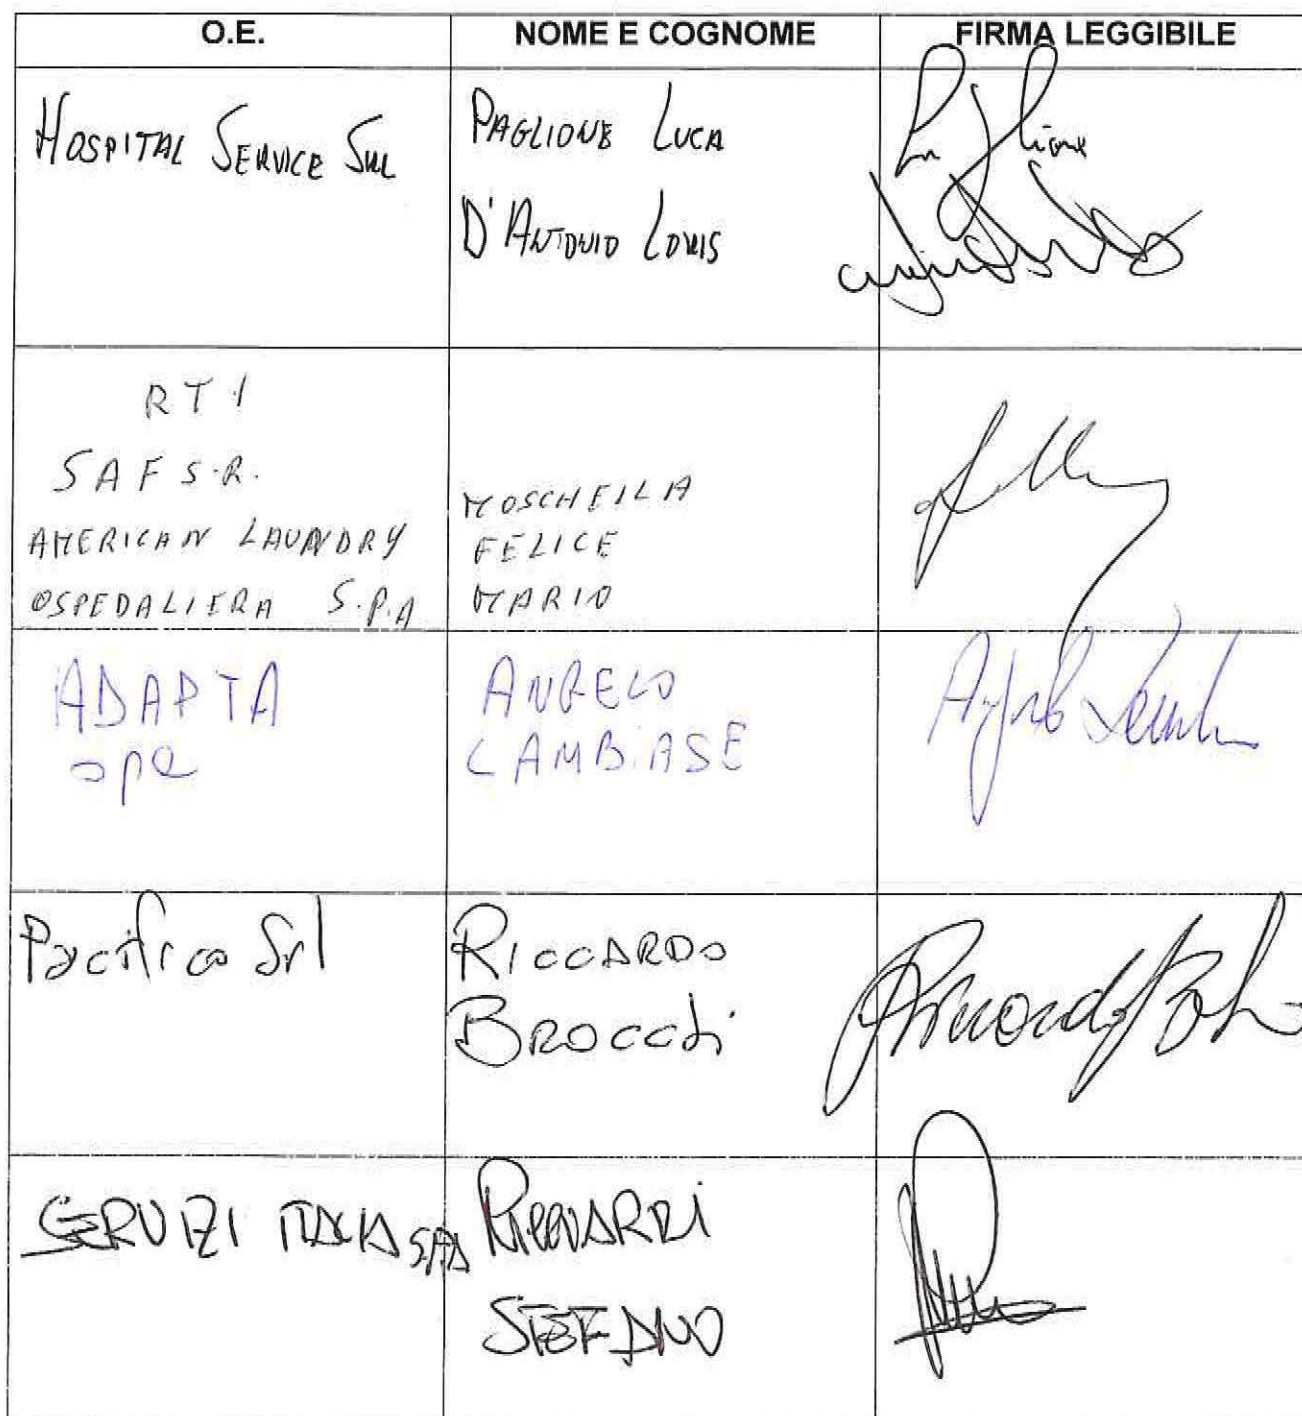 O.E. NOME E COGNOME FIRMA LEGGIBILE
HOSPITAL SERVICE SRL
PAGLIONE LUCA
D'ANTONIO LORIS
RTI
SAF S.R.
AMERICAN LAUNDRY
OSPEDALIERA S.P.A
FELICE
MARIO
ADAPTA
spa
ANGELO
LAMBIASE
Pacifico Srl
RICCARDO
BROCCHI
SERVIZI ITALIA SPA
STEFANO